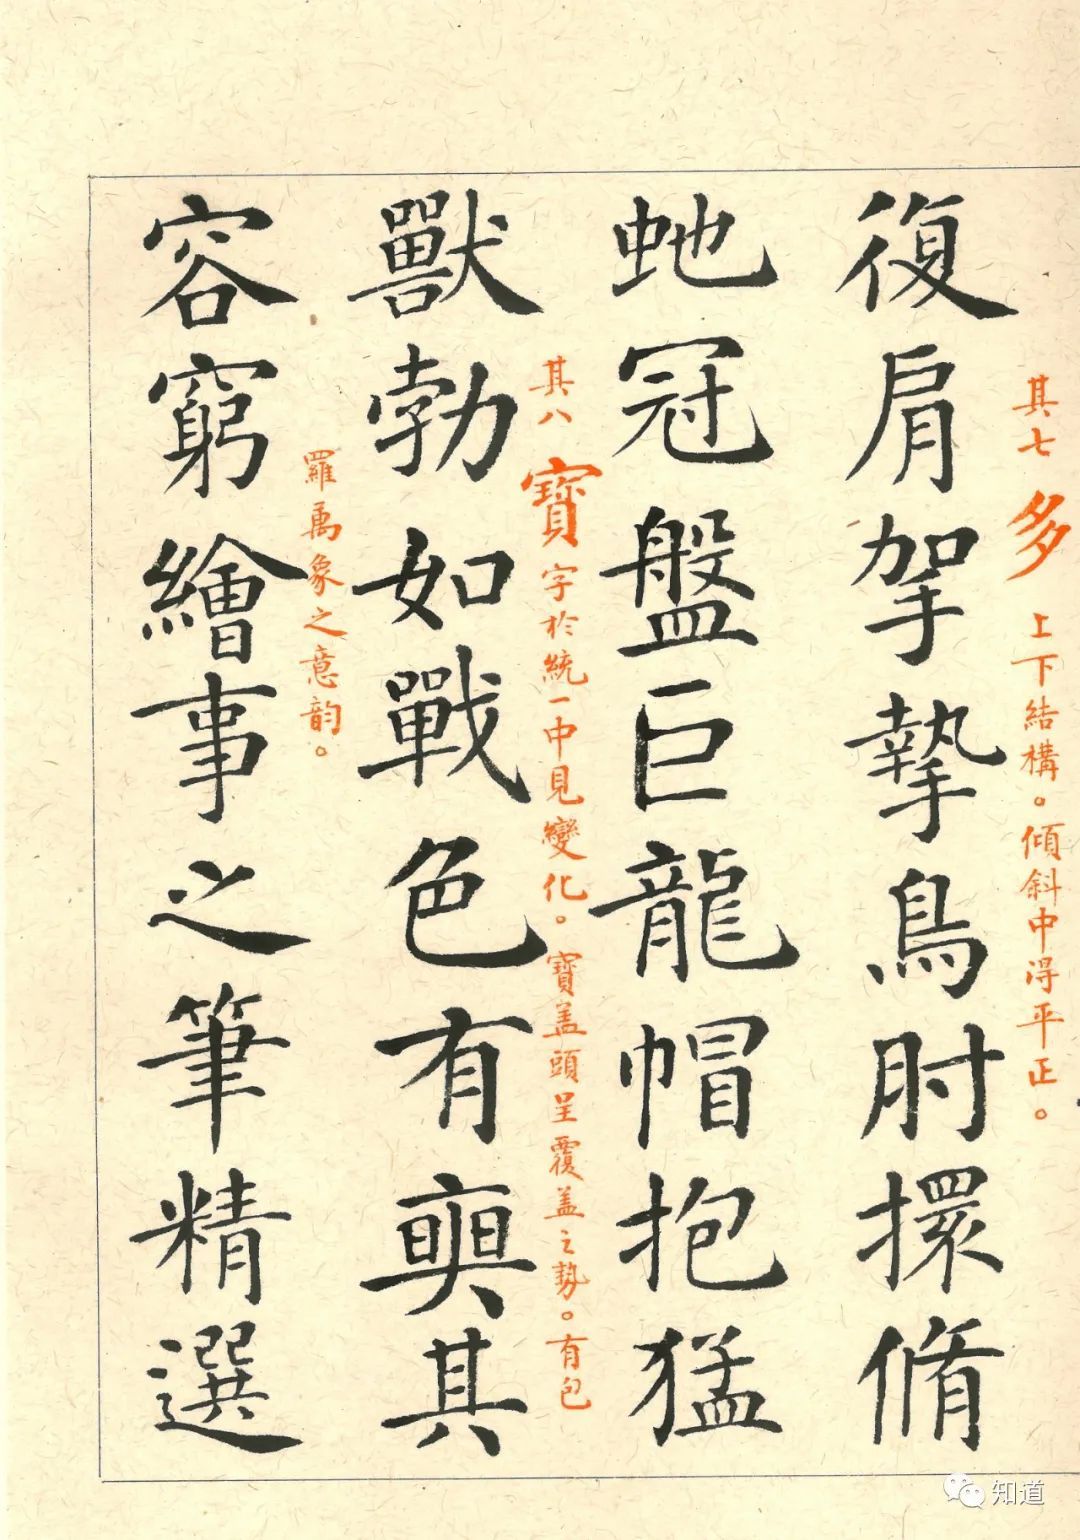 其七 多 上下結構。傾斜中得平正。
復肩挐摯鳥肘擐脩
虵冠盤巨龍帽抱猛
其八 寶 字於統一中見變化。寶盖頭呈覆盖之勢。有包
獸勃如戰色有奭其
羅萬象之意韵。
容窮繪事之筆精選
知道